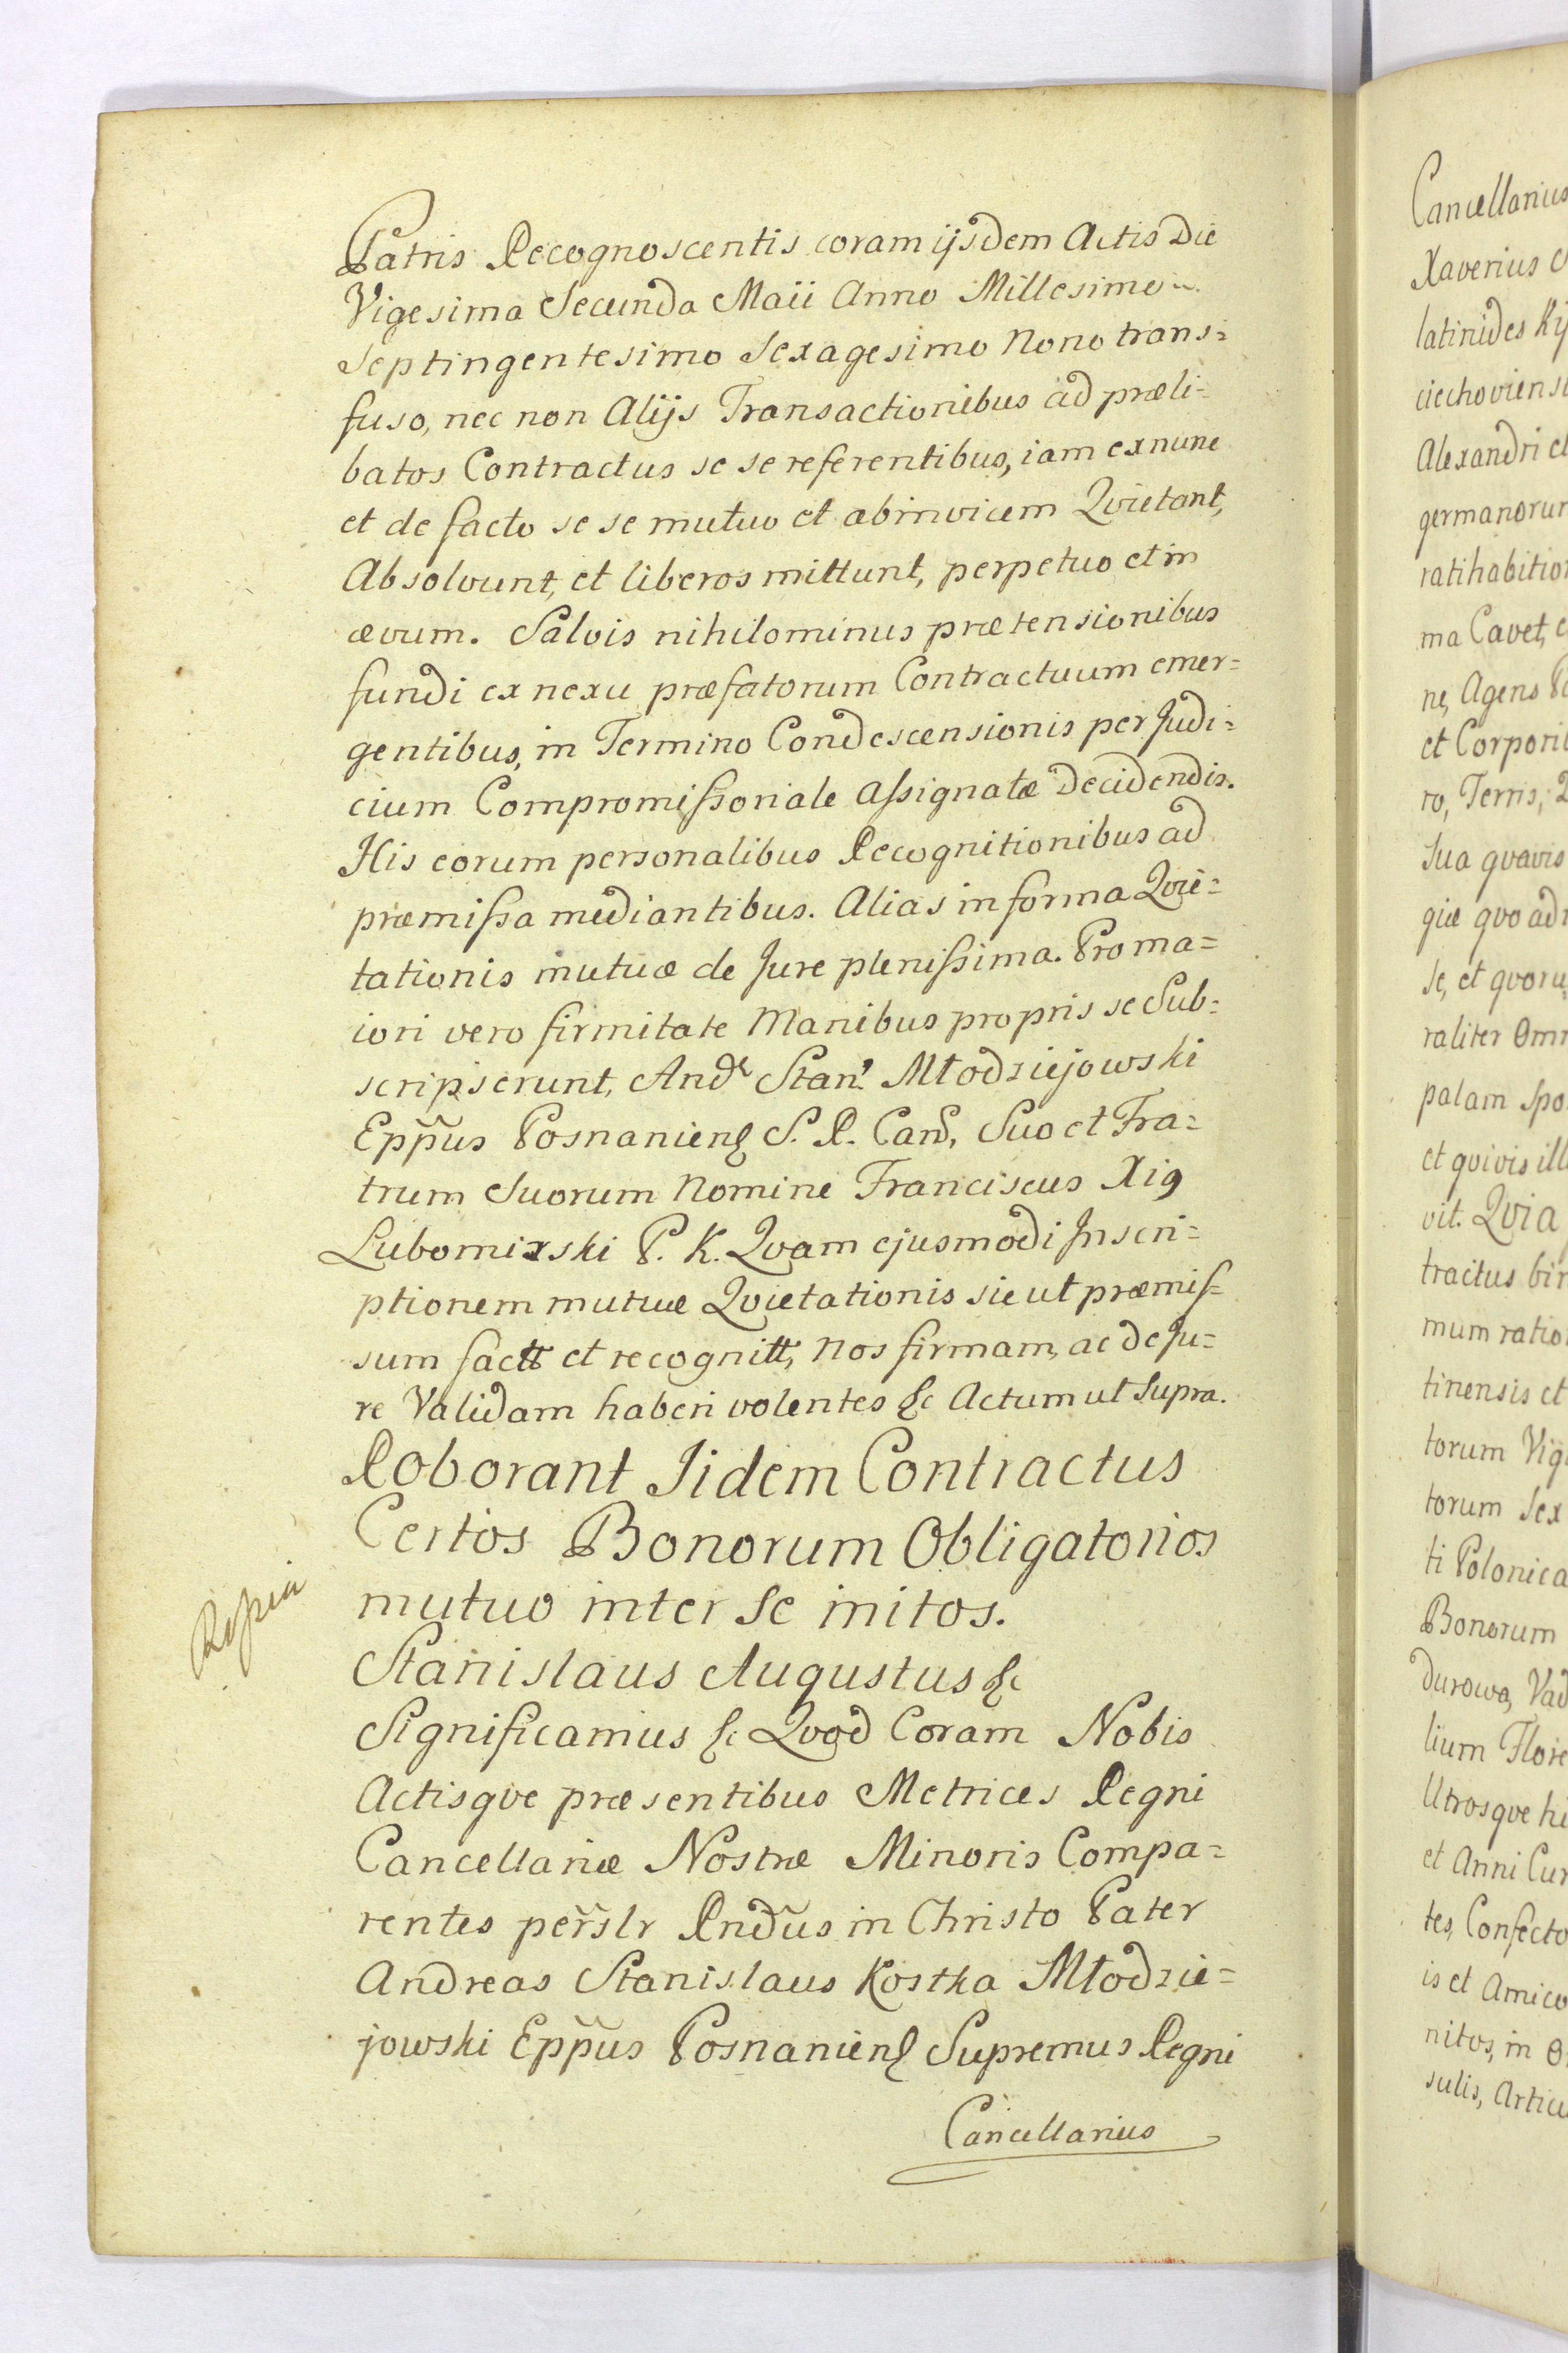 Patris Recognoscentis coram ijsdem Actis Die
Vigesima Secunda Maii Anno Millesimo
Septingentesimo Sexagesimo Nono trans=
fuso, nec non Alijs Transactionibus ad præli=
batos Contractus se se referentibus, iam exnunc
et de facto se se mutuo et abinvicem Qvietant,
Absolvunt, et liberos mittunt, perpetuo et in
ævum. Salvis nihilominus prætensionibus
fundi ex nexu præfatorum Contractuum emer=
gentibus, in Termino Condescensionis per Judi=
cium Compromissoriale Assignatæ Decidendis.
His eorum personalibus Recognitionibus ad
præmissa mediantibus. Alias in forma Qvie=
tationis mutuæ de Jure plenissima. Pro ma=
iori vero firmitate Manibus propris se Sub=
scripserunt, And. Stan. Młodziejowski
Epp̃us Posnaniens S. R. Can, Suo et Fra=
trum Suorum Nomine Franciscus Xig
Lubomirski P. K. Qvam ejusmodi Inscri=
ptionem mutuæ Qvietationis sicut præmis=
sum factt et recognitt, Nos firmam, ac de Ju=
re Validam haberi volentes &c Actum ut Supra.
Roborant Iidem Contractus
Certos Bonorum Obligatorios
mutuo inter Se initos.
Stanislaus Augustus &c
Significamus &c Qvod Coram Nobis
Actisqve præsentibus Metrices Regni
Cancellariæ Nostræ Minoris Compa=
rentes per̃slr Rnd̃us in Christo Pater
Andreas Stanislaus Kostka Młodzie=
jowski Epp̃us Posnaniens Supremus Regni
Cancellarius
Cancellarius
Xaverius
latinides Kij
ciechoviensi
Alexandri et
germanorum
ratihabition
ma Cavet, e
ne, Agens
et Corpori
ro, Terris,
Sua qvavis
giæ qvo ad
se, et qvoru
raliter Omn
palam Spo
et qvivis ill
vit. Qvia
tractus bin
mum ratio
tinensis et
torum Vig
torum Sex
ti Polonica
Bonorum
durowa, Vad
lium Flore
Utrosqve hi
et Anni Cur
tes, Confecto
is et Amico
nitos, in O
sulis, Articu